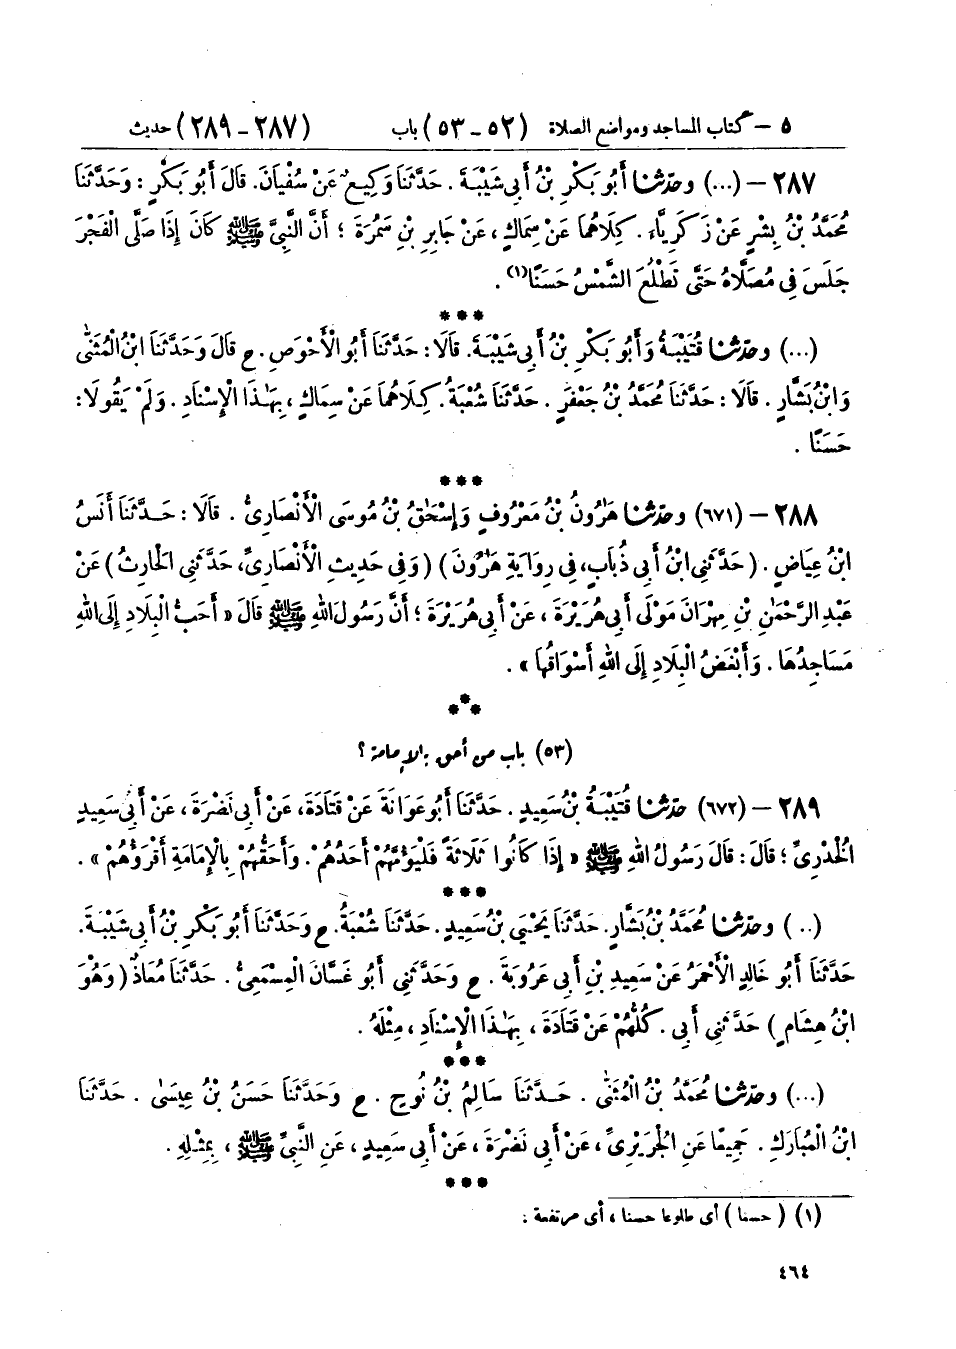 ٥ – كتاب المساجد ومواضع الصلاة (٥٢ – ٥٣) باب (٢٨٧ – ٢٨٩) حديث
٢٨٧ – (...) وحَدَّثَنَا أَبُو بَكْرِ بْنُ أَبِي شَيْبَةَ. حَدَّثَنَا وَكِيعٌ عَنْ سُفْيَانَ. قَالَ أَبُو بَكْرٍ: وَحَدَّثَنَا
مُحَمَّدُ بْنُ بِشْرٍ عَنْ زَكَرِيَّاءَ. كِلَاهُمَا عَنْ سِمَاكٍ، عَنْ جَابِرِ بْنِ سَمُرَةَ؛ أَنَّ النَّبِيَّ ﷺ كَانَ إِذَا صَلَّى الْفَجْرَ
جَلَسَ فِي مُصَلَّاهُ حَتَّى تَطْلُعَ الشَّمْسُ حَسَنًا(١).
***
(...) وحَدَّثَنَا قُتَيْبَةُ وَأَبُو بَكْرِ بْنُ أَبِي شَيْبَةَ. قَالَا: حَدَّثَنَا أَبُو الْأَحْوَصِ. ح قَالَ وَحَدَّثَنَا ابْنُ الْمُثَنَّى
وَابْنُ بَشَّارٍ. قَالَا: حَدَّثَنَا مُحَمَّدُ بْنُ جَعْفَرٍ. حَدَّثَنَا شُعْبَةُ. كِلَاهُمَا عَنْ سِمَاكٍ، بِهَٰذَا الْإِسْنَادِ. وَلَمْ يَقُولَا:
حَسَنًا.
***
٢٨٨ – (٦٧١) وحَدَّثَنَا هَٰرُونُ بْنُ مَعْرُوفٍ وَإِسْحَٰقُ بْنُ مُوسَى الْأَنْصَارِيُّ. قَالَا: حَدَّثَنَا أَنَسُ
ابْنُ عِيَاضٍ. (حَدَّثَنِي ابْنُ أَبِي ذُبَابٍ، فِي رِوَايَةِ هَٰرُونَ) (وَفِي حَدِيثِ الْأَنْصَارِيِّ، حَدَّثَنِي الْحَارِثُ) عَنْ
عَبْدِ الرَّحْمَٰنِ بْنِ مِهْرَانَ مَوْلَى أَبِي هُرَيْرَةَ، عَنْ أَبِي هُرَيْرَةَ؛ أَنَّ رَسُولَ اللهِ ﷺ قَالَ «أَحَبُّ الْبِلَادِ إِلَى اللهِ
مَسَاجِدُهَا. وَأَبْغَضُ الْبِلَادِ إِلَى اللهِ أَسْوَاقُهَا».
***
(٥٣) باب من أحق بالإمامة؟
٢٨٩ – (٦٧٢) حَدَّثَنَا قُتَيْبَةُ بْنُ سَعِيدٍ. حَدَّثَنَا أَبُو عَوَانَةَ عَنْ قَتَادَةَ، عَنْ أَبِي نَضْرَةَ، عَنْ أَبِي سَعِيدٍ
الْخُدْرِيِّ؛ قَالَ: قَالَ رَسُولُ اللهِ ﷺ «إِذَا كَانُوا ثَلَاثَةً فَلْيَؤُمَّهُمْ أَحَدُهُمْ. وَأَحَقُّهُمْ بِالْإِمَامَةِ أَقْرَؤُهُمْ».
***
(..) وحَدَّثَنَا مُحَمَّدُ بْنُ بَشَّارٍ. حَدَّثَنَا يَحْيَى بْنُ سَعِيدٍ. حَدَّثَنَا شُعْبَةُ. ح وَحَدَّثَنَا أَبُو بَكْرِ بْنُ أَبِي شَيْبَةَ.
حَدَّثَنَا أَبُو خَالِدٍ الْأَحْمَرُ عَنْ سَعِيدِ بْنِ أَبِي عَرُوبَةَ. ح وَحَدَّثَنِي أَبُو غَسَّانَ الْمِسْمَعِيُّ. حَدَّثَنَا مُعَاذٌ (وَهُوَ
ابْنُ هِشَامٍ) حَدَّثَنِي أَبِي. كُلُّهُمْ عَنْ قَتَادَةَ، بِهَٰذَا الْإِسْنَادِ، مِثْلَهُ.
***
(...) وحَدَّثَنَا مُحَمَّدُ بْنُ الْمُثَنَّى. حَدَّثَنَا سَالِمُ بْنُ نُوحٍ. ح وَحَدَّثَنَا حَسَنُ بْنُ عِيسَى. حَدَّثَنَا
ابْنُ الْمُبَارَكِ. جَمِيعًا عَنِ الْجُرَيْرِيِّ، عَنْ أَبِي نَضْرَةَ، عَنْ أَبِي سَعِيدٍ، عَنِ النَّبِيِّ ﷺ، بِمِثْلِهِ.
***
(١) (حسنا) أى طلوعا حسنا، أى مرتفعة:
٤٦٤